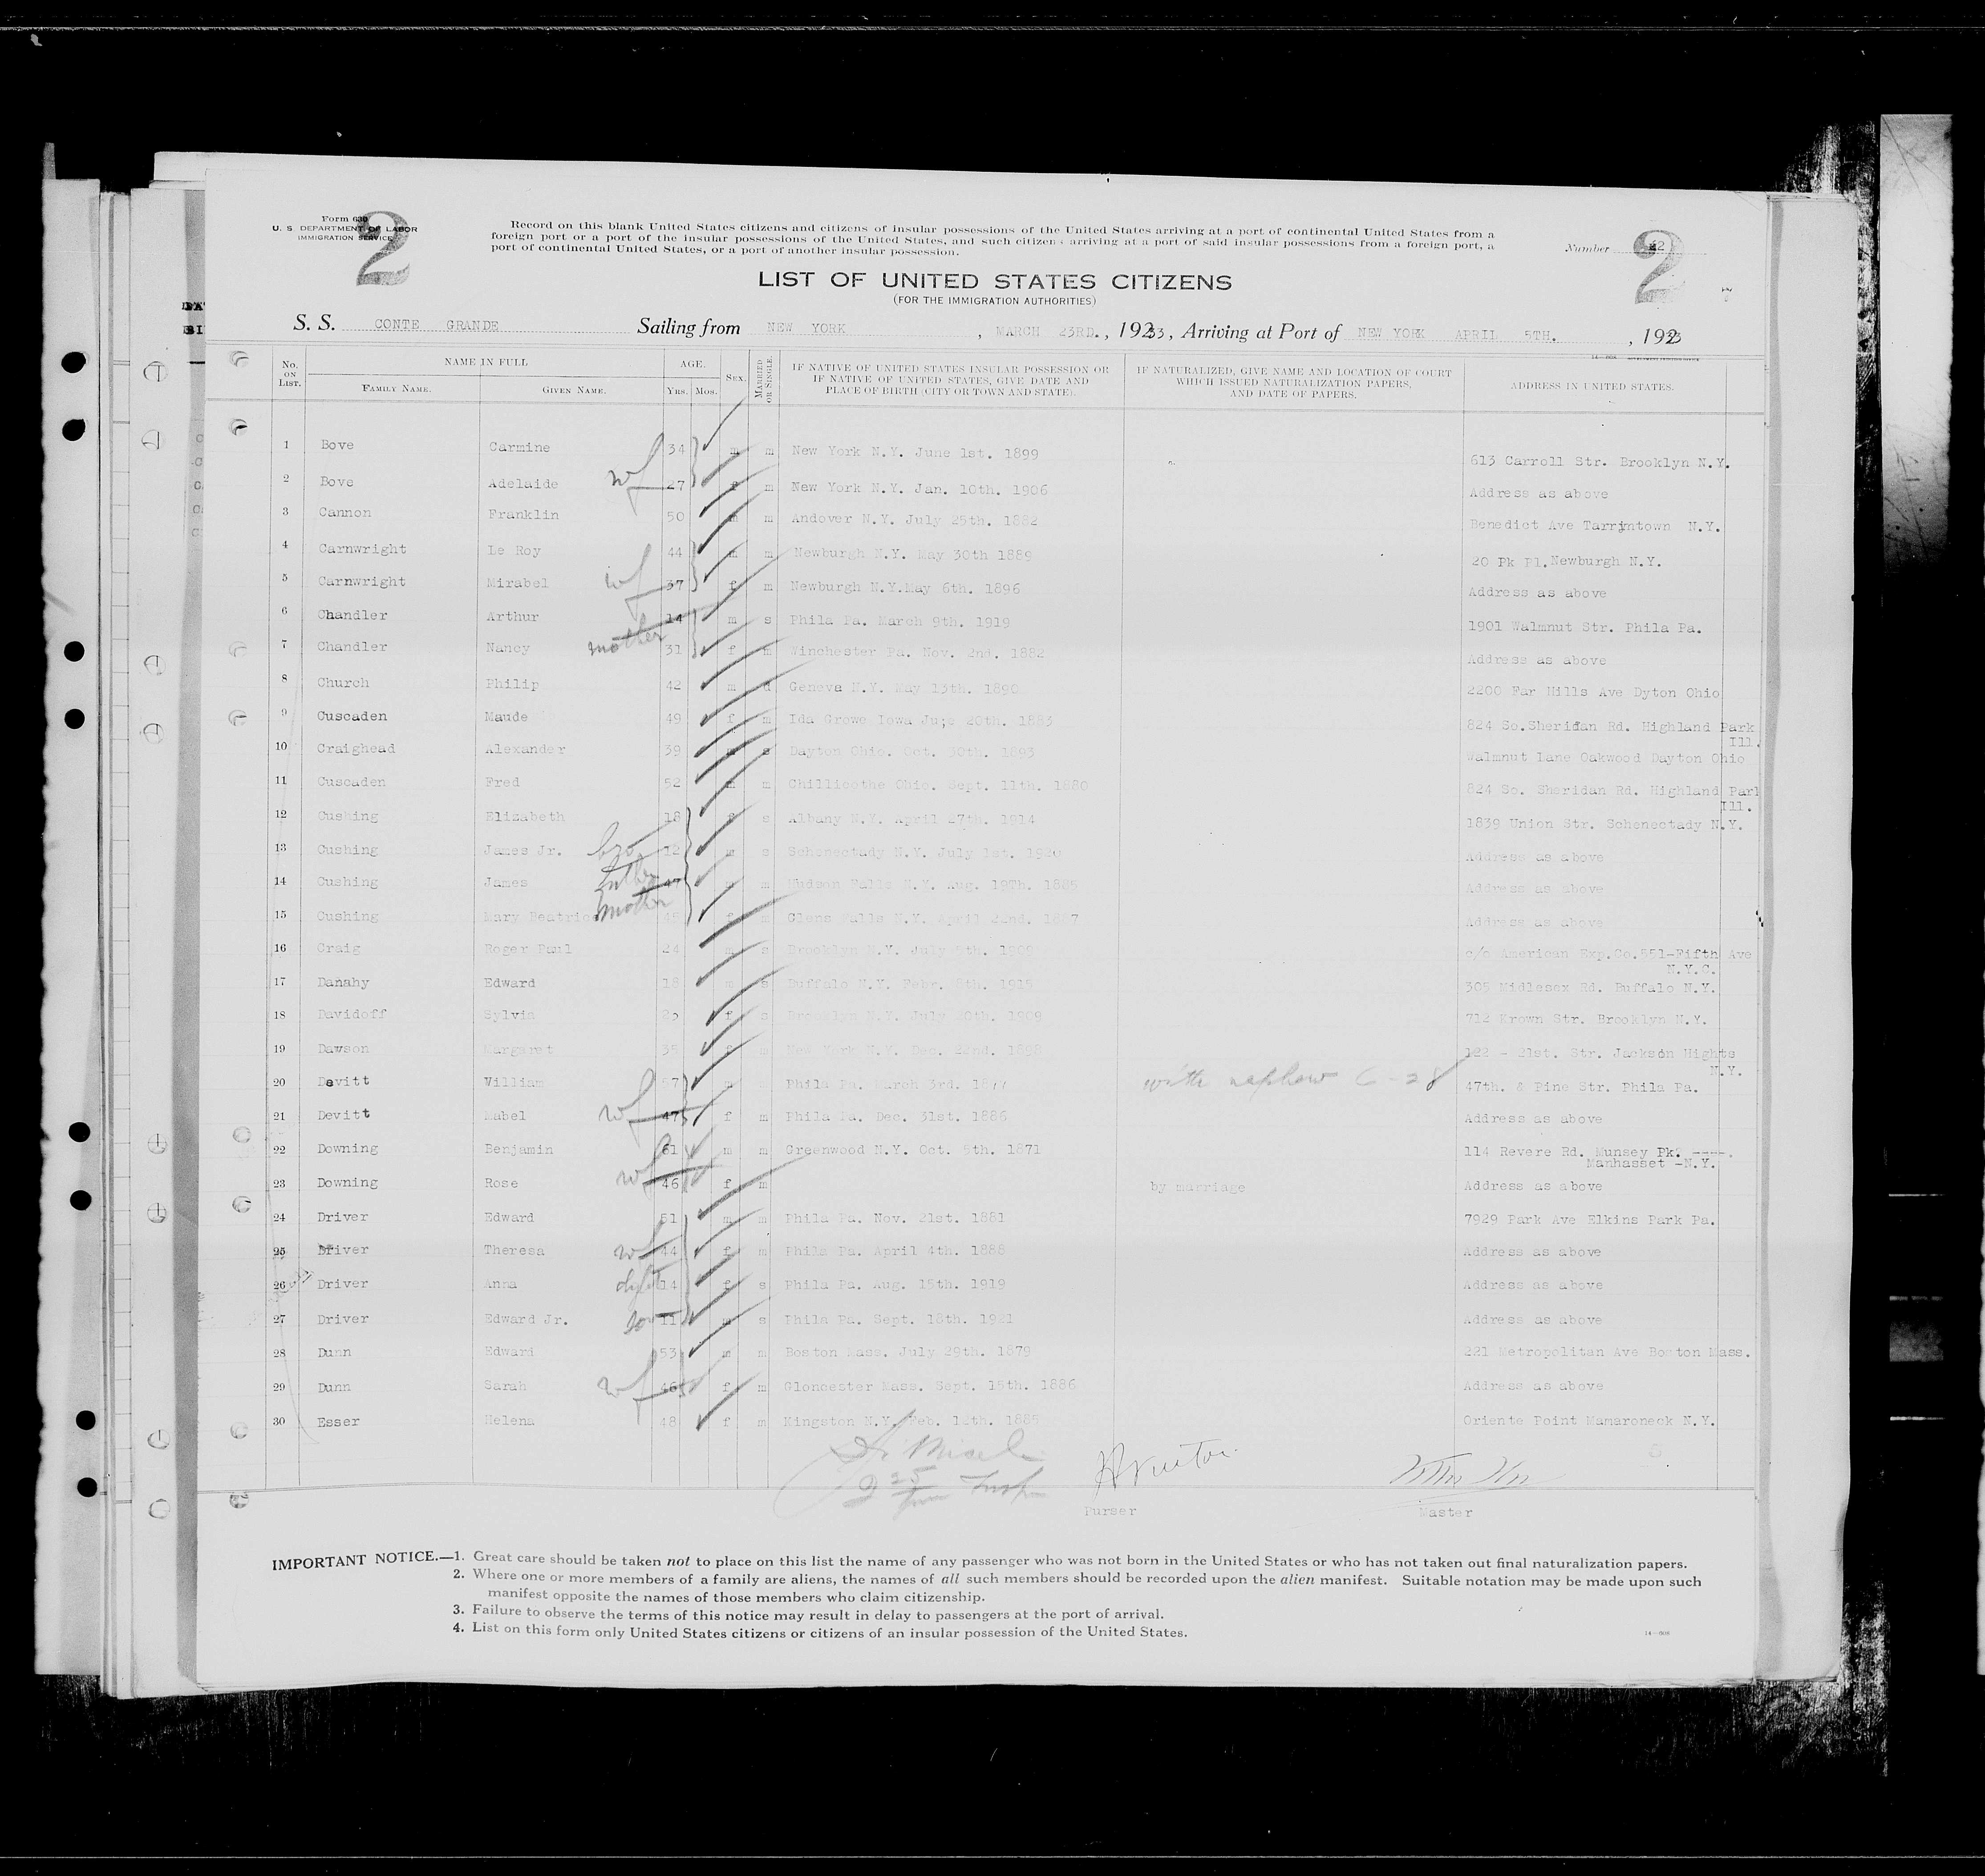 Form 630
U. S. DEPARTMENT OF LABOR
IMMIGRATION SERVICE
2
Record on this blank United States citizens and citizens of insular possessions of the United States arriving at a port of continental United States from a
foreign port or a port of the insular possessions of the United States, and such citizens arriving at a port of said insular possessions from a foreign port, a
port of continental United States, or a port of another insular possession.
Number
2
LIST OF UNITED STATES CITIZENS
(FOR THE IMMIGRATION AUTHORITIES)
S. S. CONTE GRANDE Sailing from NEW YORK , MARCH 23RD. , 1933, Arriving at Port of NEW YORK APRIL 5TH. , 1933
No. ON LIST. NAME IN FULL AGE. SEX. MARRIED OR SINGLE. IF NATIVE OF UNITED STATES INSULAR POSSESSION OR IF NATIVE OF UNITED STATES, GIVE DATE AND PLACE OF BIRTH (CITY OR TOWN AND STATE). IF NATURALIZED, GIVE NAME AND LOCATION OF COURT WHICH ISSUED NATURALIZATION PAPERS, AND DATE OF PAPERS. ADDRESS IN UNITED STATES.
FAMILY NAME. GIVEN NAME. YRS. MOS.
1 Bove Carmine 34 m m New York N.Y. June 1st. 1899 613 Carroll Str. Brooklyn N.Y.
2 Bove Adelaide wf 27 f m New York N.Y. Jan. 10th. 1906 Address as above
3 Cannon Franklin 50 m m Andover N.Y. July 25th. 1882 Benedict Ave Tarryntown N.Y.
4 Carnwright Le Roy 44 m m Newburgh N.Y. May 30th 1889 20 Pk Pl. Newburgh N.Y.
5 Carnwright Mirabel wf 37 f m Newburgh N.Y.May 6th. 1896 Address as above
6 Chandler Arthur 14 m s Phila Pa. March 9th. 1919 1901 Walmnut Str. Phila Pa.
7 Chandler Nancy mother 31 f m Winchester Pa. Nov. 2nd. 1882 Address as above
8 Church Philip 42 m d Geneva N.Y. May 13th. 1890 2200 Far Hills Ave Dyton Ohio
9 Cuscaden Maude 49 f m Ida Growe Iowa Ju;e 20th. 1883 824 So.Sheridan Rd. Highland Park Ill.
10 Craighead Alexander 39 m s Dayton Ohio. Oct. 30th. 1893 Walmnut Lane Oakwood Dayton Ohio
11 Cuscaden Fred 52 m m Chillicothe Ohio. Sept. 11th. 1880 824 So. Sheridan Rd. Highland Park Ill.
12 Cushing Elizabeth 18 f s Albany N.Y. April 27th. 1914 1839 Union Str. Schenectady N.Y.
13 Cushing James Jr. bro 12 m s Schenectady N.Y. July 1st. 1920 Address as above
14 Cushing James father 47 m m Hudson Falls N.Y. Aug. 19Th. 1885 Address as above
15 Cushing Mary Beatrice mother 45 f m Glens Falls N.Y. April 22nd. 1887 Address as above
16 Craig Roger Paul 24 m s Brooklyn N.Y. July 1909 c/o American Exp.Co.551-Fifth Ave N.Y.C.
17 Danahy Edward 18 m s Buffalo N.Y. Febr. 8th. 1915 305 Midlesex Rd. Buffalo N.Y.
18 Davidoff Sylvia f s Brooklyn N.Y. July 20th. 1909 712 Krown Str. Brooklyn N.Y.
19 Dawson Margaret 35 f m New York N.Y. Dec. 22nd. 1898 122 - 21st. Str. Jackson Hights N.Y.
20 Devitt William 57 m m Phila Pa. March 3rd. 1877 with nephew C-28 47th. & Pine Str. Phila Pa.
21 Devitt Mabel wf 47 f m Phila Pa. Dec. 31st. 1886 Address as above
22 Downing Benjamin 61 m m Greenwood N.Y. Oct. 5th. 1871 114 Revere Rd. Munsey Pk. ----. Manhasset -N.Y.
23 Downing Rose wf 46 f m by marriage Address as above
24 Driver Edward 51 m m Phila Pa. Nov. 21st. 1881 7929 Park Ave Elkins Park Pa.
25 Driver Theresa wf 44 f m Phila Pa. April 4th. 1888 Address as above
26 Driver Anna dght 14 f s Phila Pa. Aug. 15th. 1919 Address as above
27 Driver Edward Jr. son 11 m s Phila Pa. Sept. 18th. 1921 Address as above
28 Dunn Edward 53 m m Boston Mass. July 29th. 1879 221 Metropolitan Ave Boston Mass.
29 Dunn Sarah wf 46 f m Gloncester Mass. Sept. 15th. 1886 Address as above
30 Esser Helena 48 f m Kingston N.Y. Feb. 12th. 1885 Oriente Point Mamaroneck N.Y.
Purser Master
IMPORTANT NOTICE.—1. Great care should be taken not to place on this list the name of any passenger who was not born in the United States or who has not taken out final naturalization papers.
2. Where one or more members of a family are aliens, the names of all such members should be recorded upon the alien manifest. Suitable notation may be made upon such
manifest opposite the names of those members who claim citizenship.
3. Failure to observe the terms of this notice may result in delay to passengers at the port of arrival.
4. List on this form only United States citizens or citizens of an insular possession of the United States.
14—608